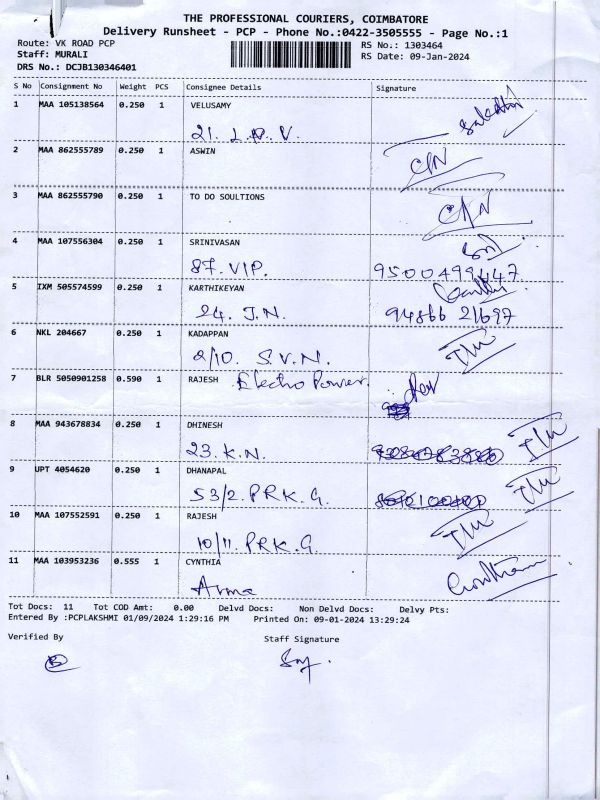 THE PROFESSIONAL COURIERS, COIMBATORE
Delivery Runsheet - PCP - Phone No.:0422-3505555 - Page No.:1
Route: VK ROAD PCP RS No.: 1303464
Staff: MURALI RS Date: 09-Jan-2024
DRS No.: DCJB130346401
S No Consignment No Weight PCS Consignee Details Signature
1 MAA 105138564 0.250 1 VELUSAMY
21. L.P.V.
2 MAA 862555789 0.250 1 ASWIN C/N
3 MAA 862555790 0.250 1 TO DO SOULTIONS C/N
4 MAA 107556304 0.250 1 SRINIVASAN
87. VIP. 9500499447
5 IXM 505574599 0.250 1 KARTHIKEYAN
24. J.N. 94866 21697
6 NKL 204667 0.250 1 KADAPPAN
2/10. S.V.N.
7 BLR 5050901258 0.590 1 RAJESH Electro Power.
8 MAA 943678834 0.250 1 DHINESH
23. K.N.
9 UPT 4054620 0.250 1 DHANAPAL
53/2. P.R.K. G.
10 MAA 107552591 0.250 1 RAJESH
10/11. P.R.K. G.
11 MAA 103953236 0.555 1 CYNTHIA
Tot Docs: 11 Tot COD Amt: 0.00 Delvd Docs: Non Delvd Docs: Delvy Pts:
Entered By :PCPLAKSHMI 01/09/2024 1:29:16 PM Printed On: 09-01-2024 13:29:24
Verified By Staff Signature